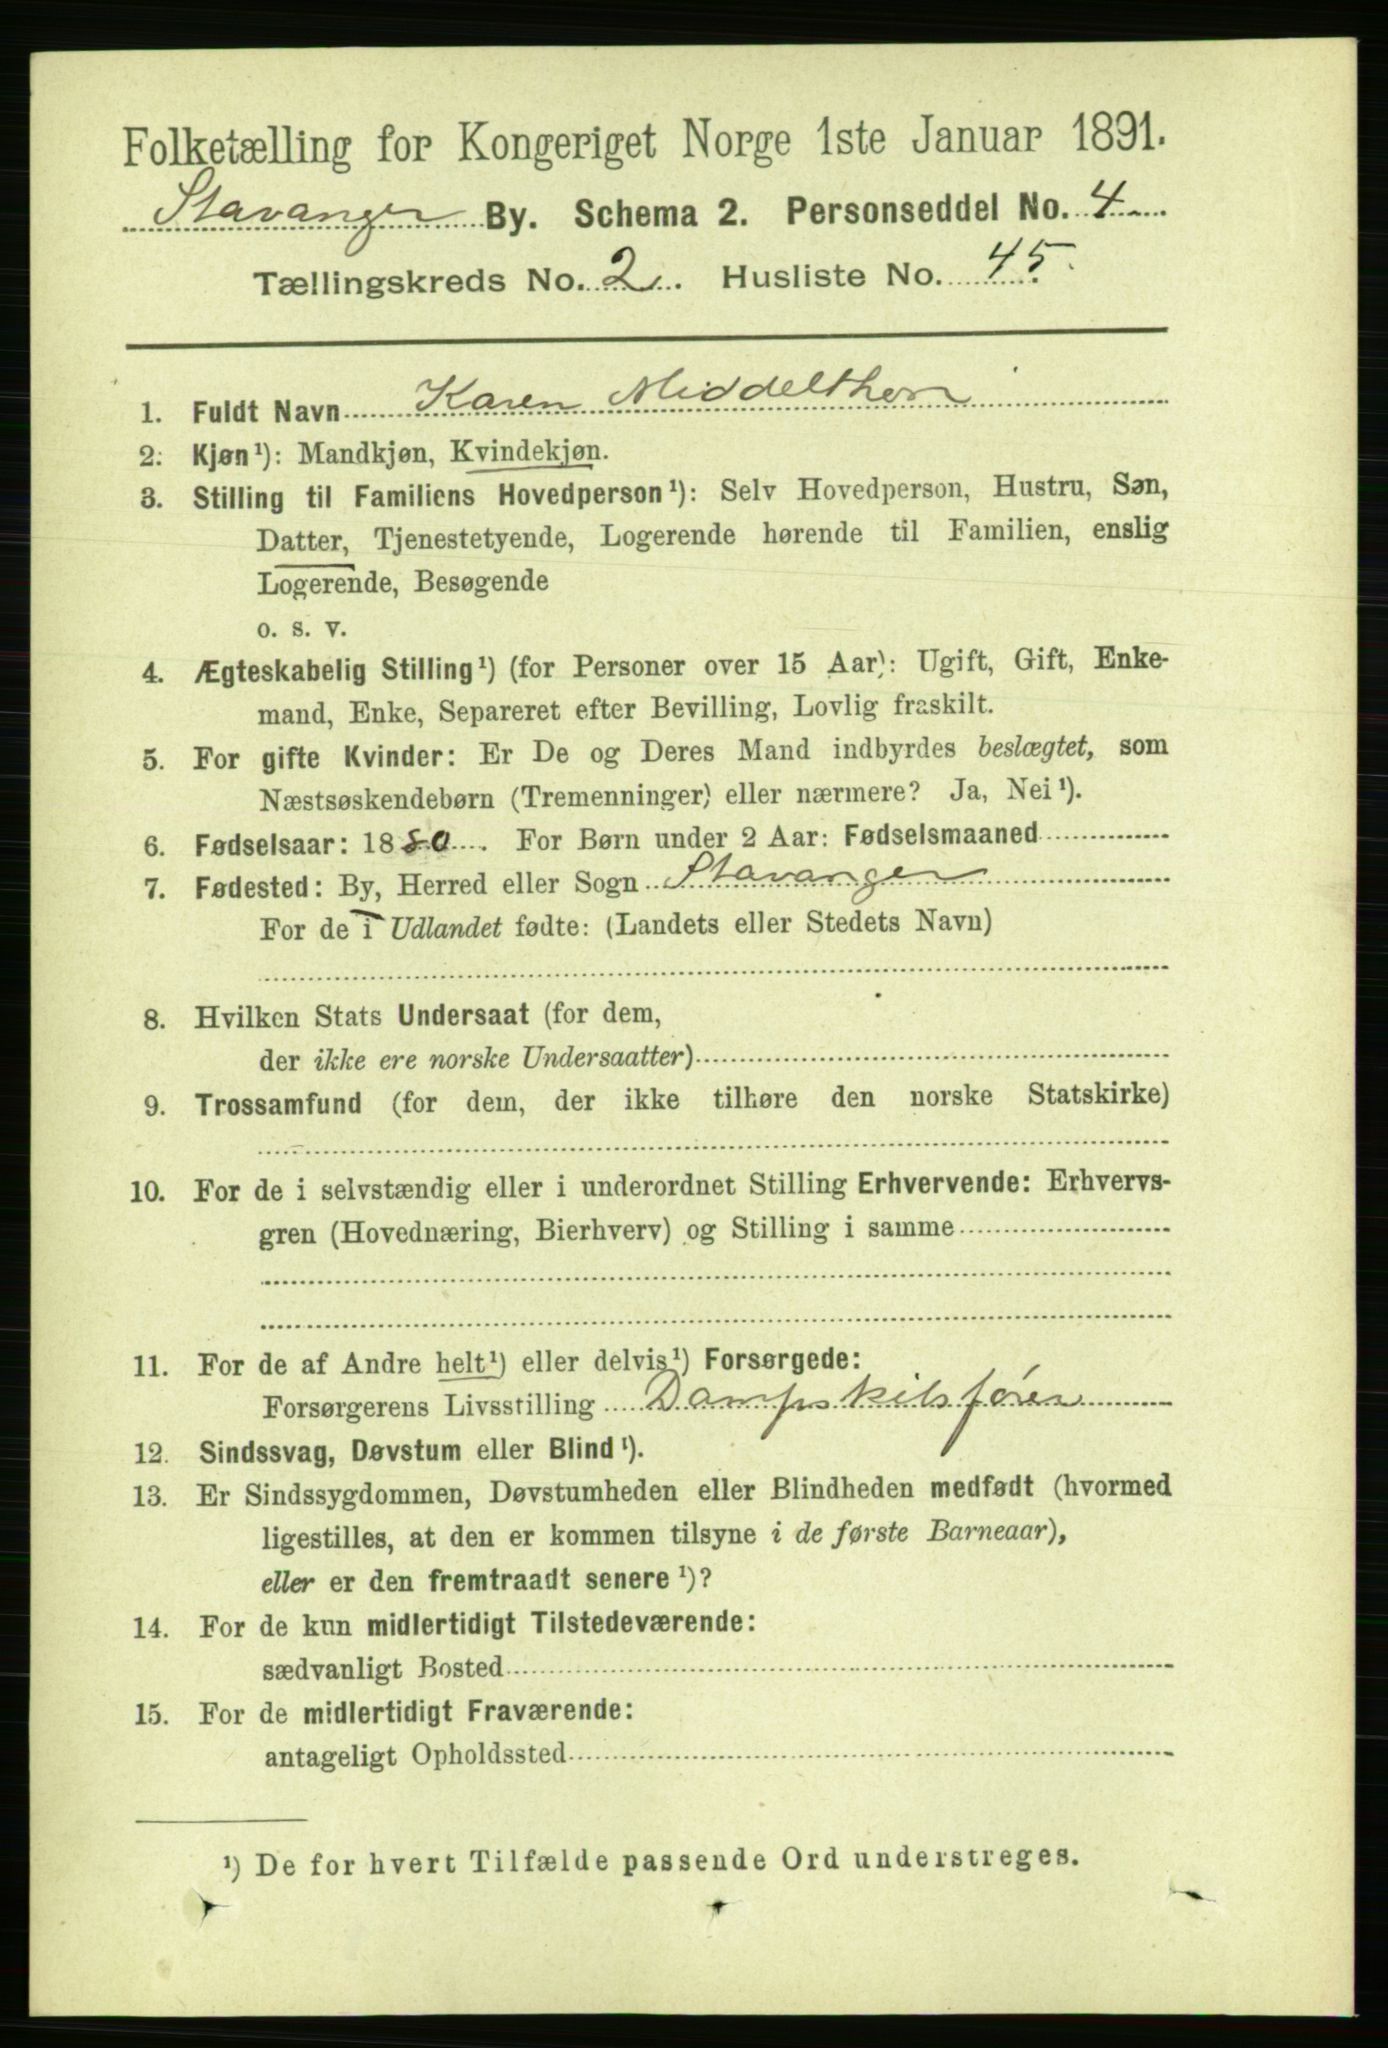 Folketælling for Kongeriget Norge 1ste Januar 1891.
Stavanger By. Schema 2. Personseddel No. 4
Tællingskreds No. 2. Husliste No. 45.
1. Fuldt Navn Karen Middelthon
2. Kjøn¹): Mandkjøn, Kvindekjøn.
3. Stilling til Familiens Hovedperson¹): Selv Hovedperson, Hustru, Søn,
Datter, Tjenestetyende, Logerende hørende til Familien, enslig
Logerende, Besøgende
o. s. v.
4. Ægteskabelig Stilling¹) (for Personer over 15 Aar): Ugift, Gift, Enke-
mand, Enke, Separeret efter Bevilling, Lovlig fraskilt.
5. For gifte Kvinder: Er De og Deres Mand indbyrdes beslægtet, som
Næstsøskendebørn (Tremenninger) eller nærmere? Ja, Nei¹).
6. Fødselsaar: 1880. For Børn under 2 Aar: Fødselsmaaned
7. Fødested: By, Herred eller Sogn Stavanger
For de i Udlandet fødte: (Landets eller Stedets Navn)
8. Hvilken Stats Undersaat (for dem,
der ikke ere norske Undersaatter)
9. Trossamfund (for dem, der ikke tilhøre den norske Statskirke)
10. For de i selvstændig eller i underordnet Stilling Erhvervende: Erhvervs-
gren (Hovednæring, Bierhverv) og Stilling i samme
11. For de af Andre helt¹) eller delvis¹) Forsørgede:
Forsørgerens Livsstilling Dampskibsfører
12. Sindssvag, Døvstum eller Blind¹).
13. Er Sindssygdommen, Døvstumheden eller Blindheden medfødt (hvormed
ligestilles, at den er kommen tilsyne i de første Barneaar),
eller er den fremtraadt senere¹)?
14. For de kun midlertidigt Tilstedeværende:
sædvanligt Bosted
15. For de midlertidigt Fraværende:
antageligt Opholdssted
¹) De for hvert Tilfælde passende Ord understreges.